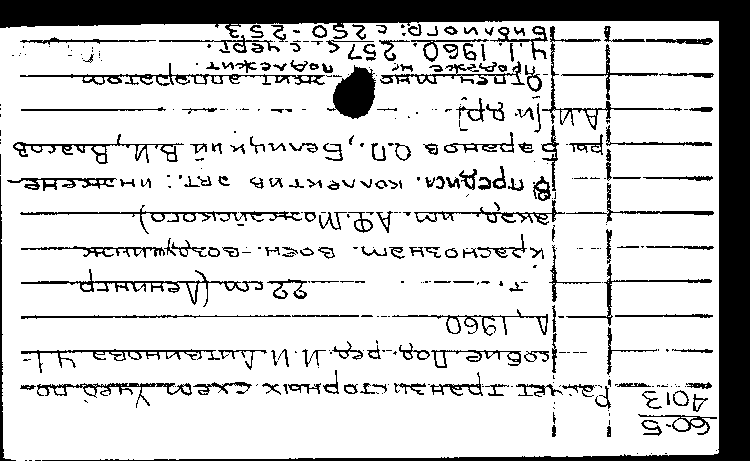 60-5
4013
Расчет транзисторных схем Учеб по-
собие Под. ред. И.И. Литвинова Ч1-
Л, 1960
т. 22 cm (Ленингр.
краснознам. воен.-воздуш инж
акад. им. А.Ф. Можайского).
В предисл. коллектив авт.: инжене-
ры Баранов О.П., Белицкий В.И., Власов
А.И. [и др]
Отпеч. множит аппаратом
продаже не подлежит.
Ч.1. 1960. 257 с. с черт.
Библиогр: с 250-253.